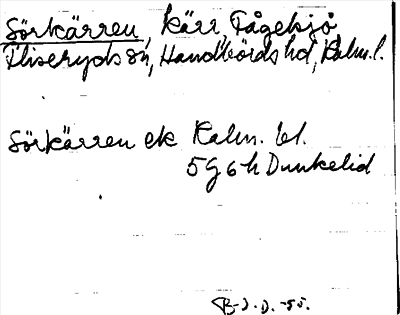 Sörkärren, kärr, Fågelsjö
Fliseryds sn, Handbörds hd, Kalm. l.
Sörkärren ek Kalm. bl.
5G6h Dunkelid
B-J. D. -55.